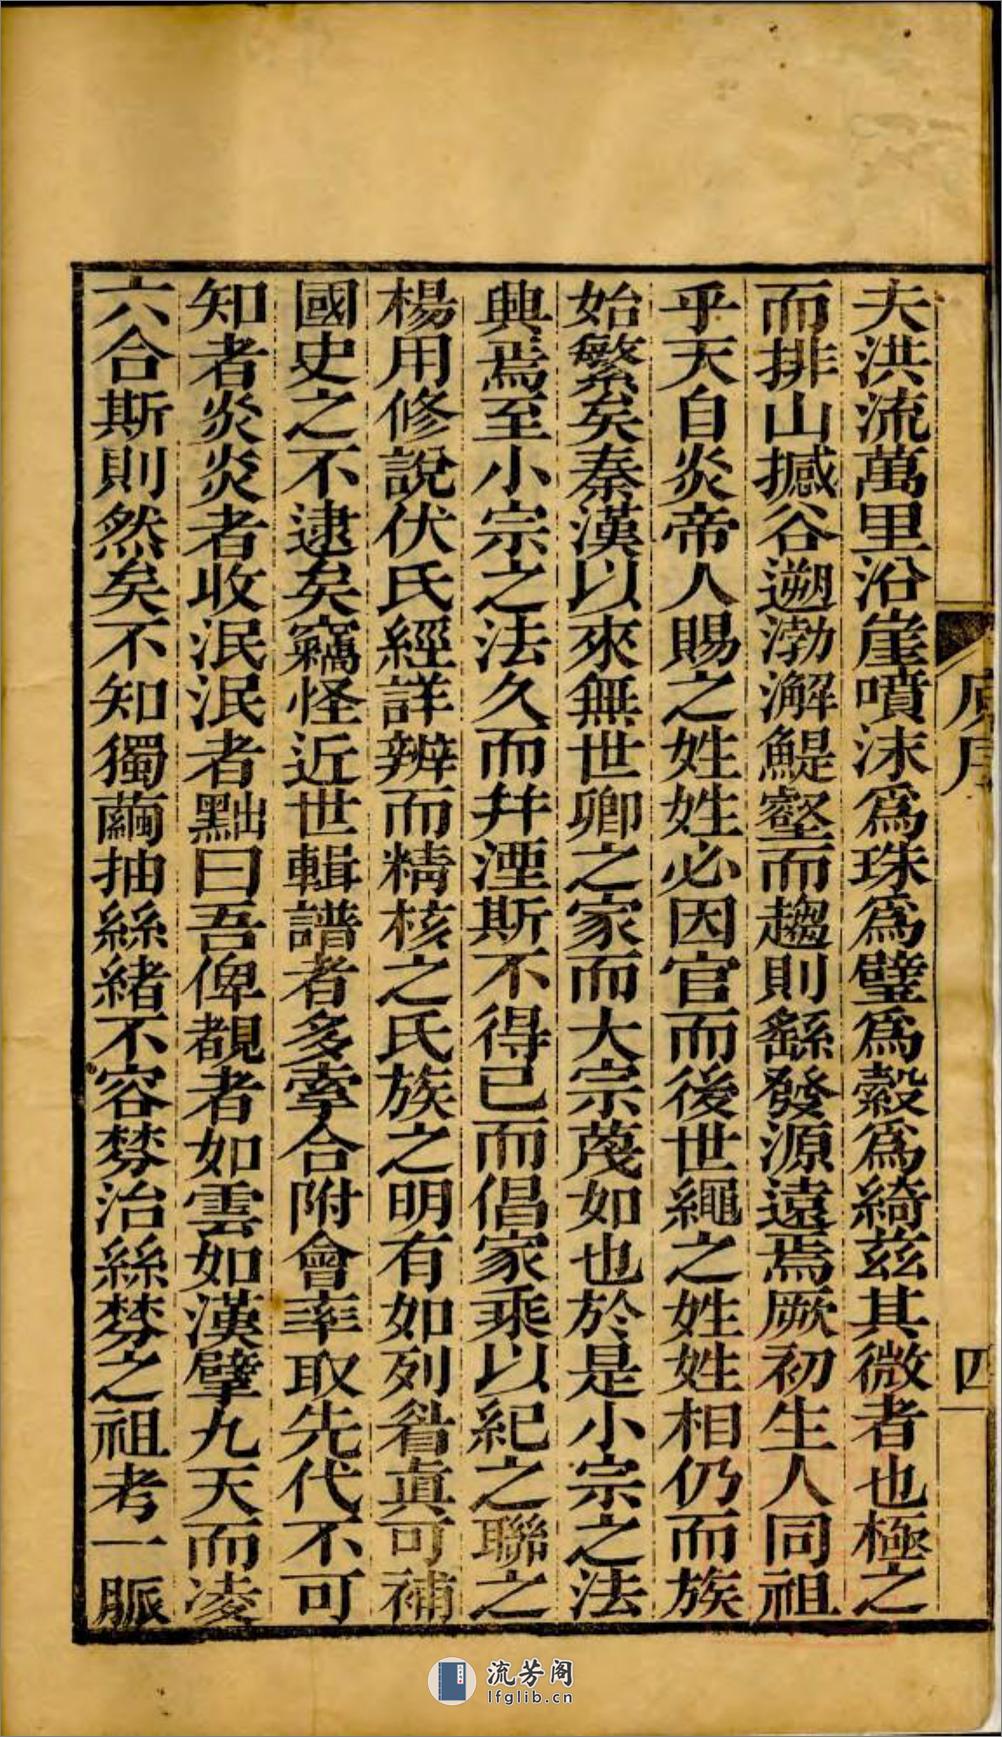 夫洪流萬里沿崖噴沫爲珠爲璧爲縠爲綺茲其微者也極之
而排山撼谷遡渤澥鯷壑而趨則繇發源遠焉厥初生人同祖
乎天自炎帝人賜之姓姓必因官而後世繩之姓姓相仍而族
始繁矣秦漢以來無世卿之家而大宗蔑如也於是小宗之法
興焉至小宗之法久而幷湮斯不得已而倡家乘以紀之聯之
楊用修說伏氏經詳辨而精核之氏族之明有如列眉真可補
國史之不逮矣竊怪近世輯譜者多牽合附會率取先代不可
知者炎炎者收泯泯者黜曰吾俾覩者如雲如漢擘九天而凌
六合斯則然矣不知獨繭抽絲緒不容棼治絲棼之祖考一脈
原序
四
流芳阁
lfglib.cn